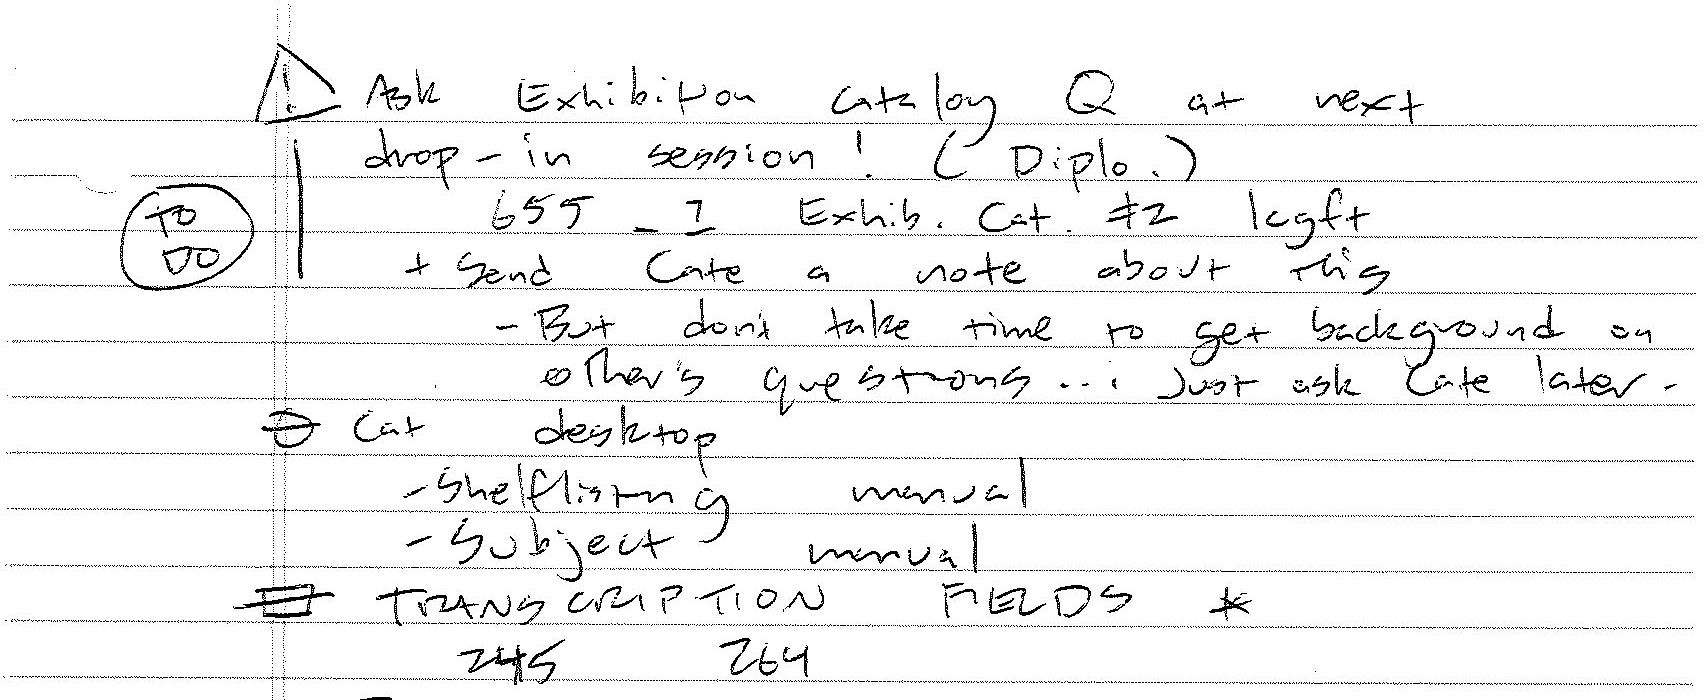 ! Ask Exhibition catalog Q at next
drop-in session! (Diplo.)
TO
DO
655 _7 Exhib. Cat. ‡2 lcgft
+ Send Cate a note about this
- But don't take time to get background on
other's questions... Just ask Cate later.
Cat desktop
- Shelflisting manual
- Subject manual
TRANSCRIPTION FIELDS *
245 264